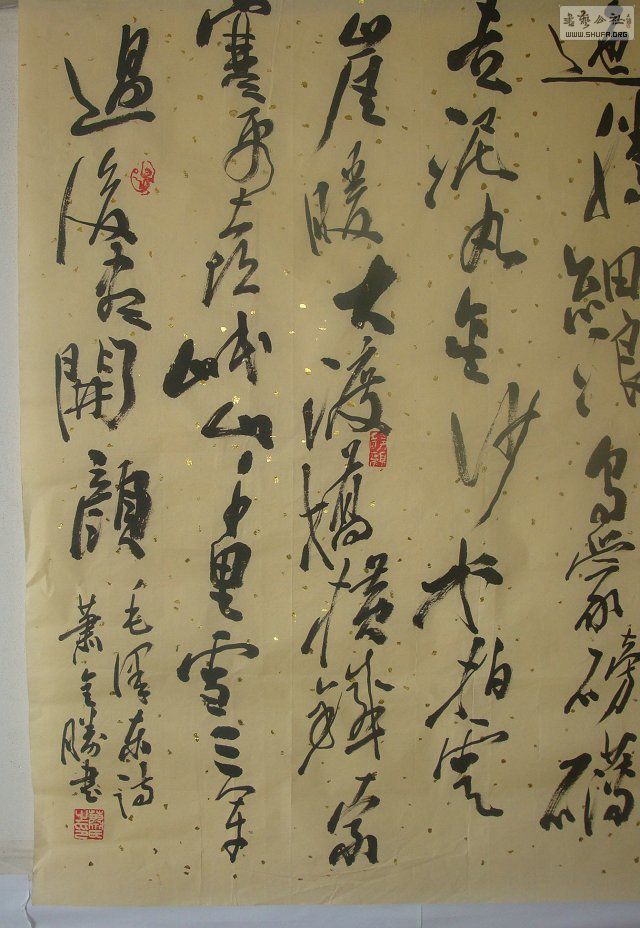 迤腾細浪烏蒙磅礴
走泥丸金沙水拍雲
崖暖大渡橋橫鐵索
寒更喜岷山千里雪三軍
過後盡開顏
毛澤東詩
蕭金勝書
書藝公社
WWW.SHUFA.ORG